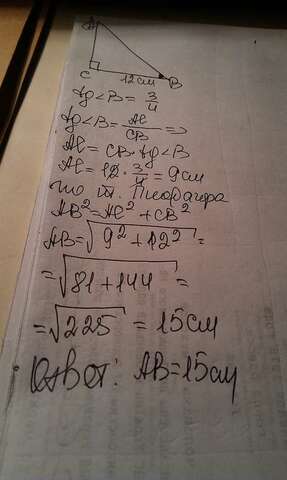 A
C 12см B
tg<B = 3/4
tg<B = AC/CB =>
AC = CB · tg<B
AC = 12 · 3/4 = 9см
по т. Пифагора
AB² = AC² + CB²
AB = √9² + 12² =
= √81 + 144 =
= √225 = 15см
Ответ: AB = 15см